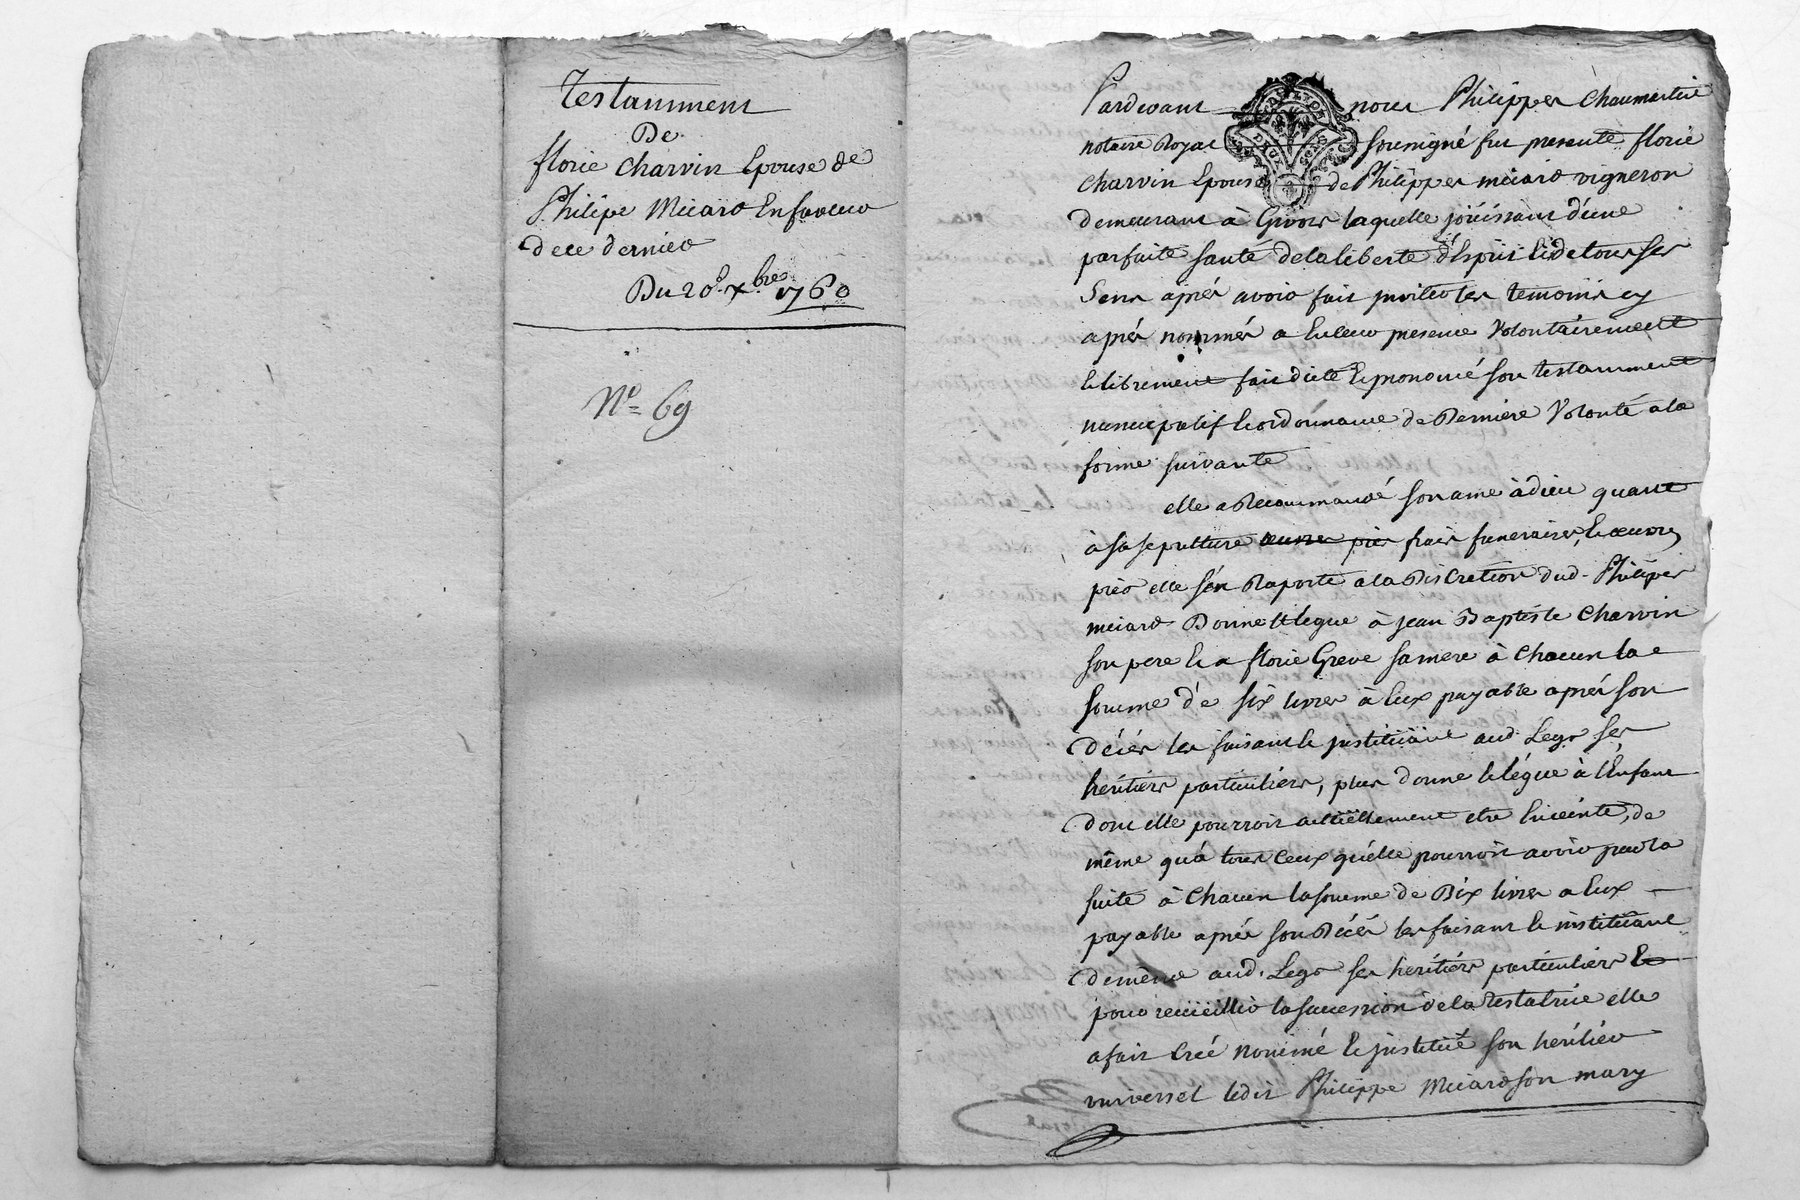 Testamment
De
florie Charvin Epouse de
Philipe Miciard En faveur
de ce dernier
Du 20e Xbre 1760
No 69
Pardevant nous Philippes Chaumartin
notaire Royal soussigné fut presente florie
Charvin Epouse de Philippes miciard vigneron
demeurant à Givors laquelle joüissant d'une
parfaite santé de la liberté d'Esprit Et de tous ses
Sens aprés avoir fait inviter les temoins cy
aprés nommés a En leur presence Volontairement
Et librement fait dicté Et prononcé son testamment
nuncupatif Et ordonnance de Derniere Volonté a la
forme suivante
elle a Recommandé son ame à dieu quant
à sa sepulture œuvres pies frais funeraires, Et œuvres
pies elle s'en Raporte a la Discretion dud. Philipes
miciard Donne Et legue à jean Baptiste Charvin
son pere Et a florie Greve sa mere à Chacun la
somme de six livres à Eux payable aprés son
décés les faisant Et instituänt aud. Legs ses
héritiers particuliers, plus donne Et légue à l'Enfant
dont elle pourroit actüellement etre Enceinte, de
même qu'à tous Ceux qu'elle pourroit avoir par la
suite à Chacun la somme de Dix livres a Eux
payable aprés son Décés les faisant Et instituänt
de même aud. Legs ses heritiers particuliers Et
pour recüeillir la succession de la Testatrice elle
a fait Créé nommé Et institué son héritier
universel ledit Philippe Miciard son mary